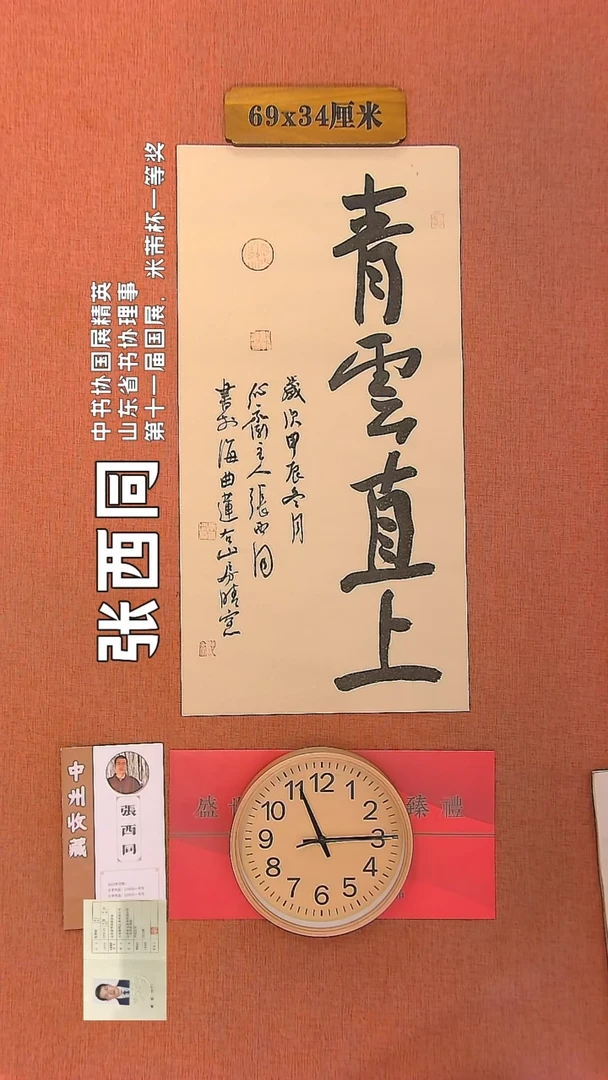 69x34厘米
青雲直上
歲次甲辰冬月
心齋主人張西同
書於海曲蓮右山房晴窗
中书协国展精英
山东省书协理事
第十一届国展、米芾杯一等奖
张西同
張西同
盛世
臻禮
12
1
2
3
4
5
6
7
8
9
10
11